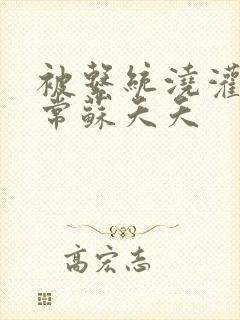 被繫統澆灌
常蘇夭夭
高宏志